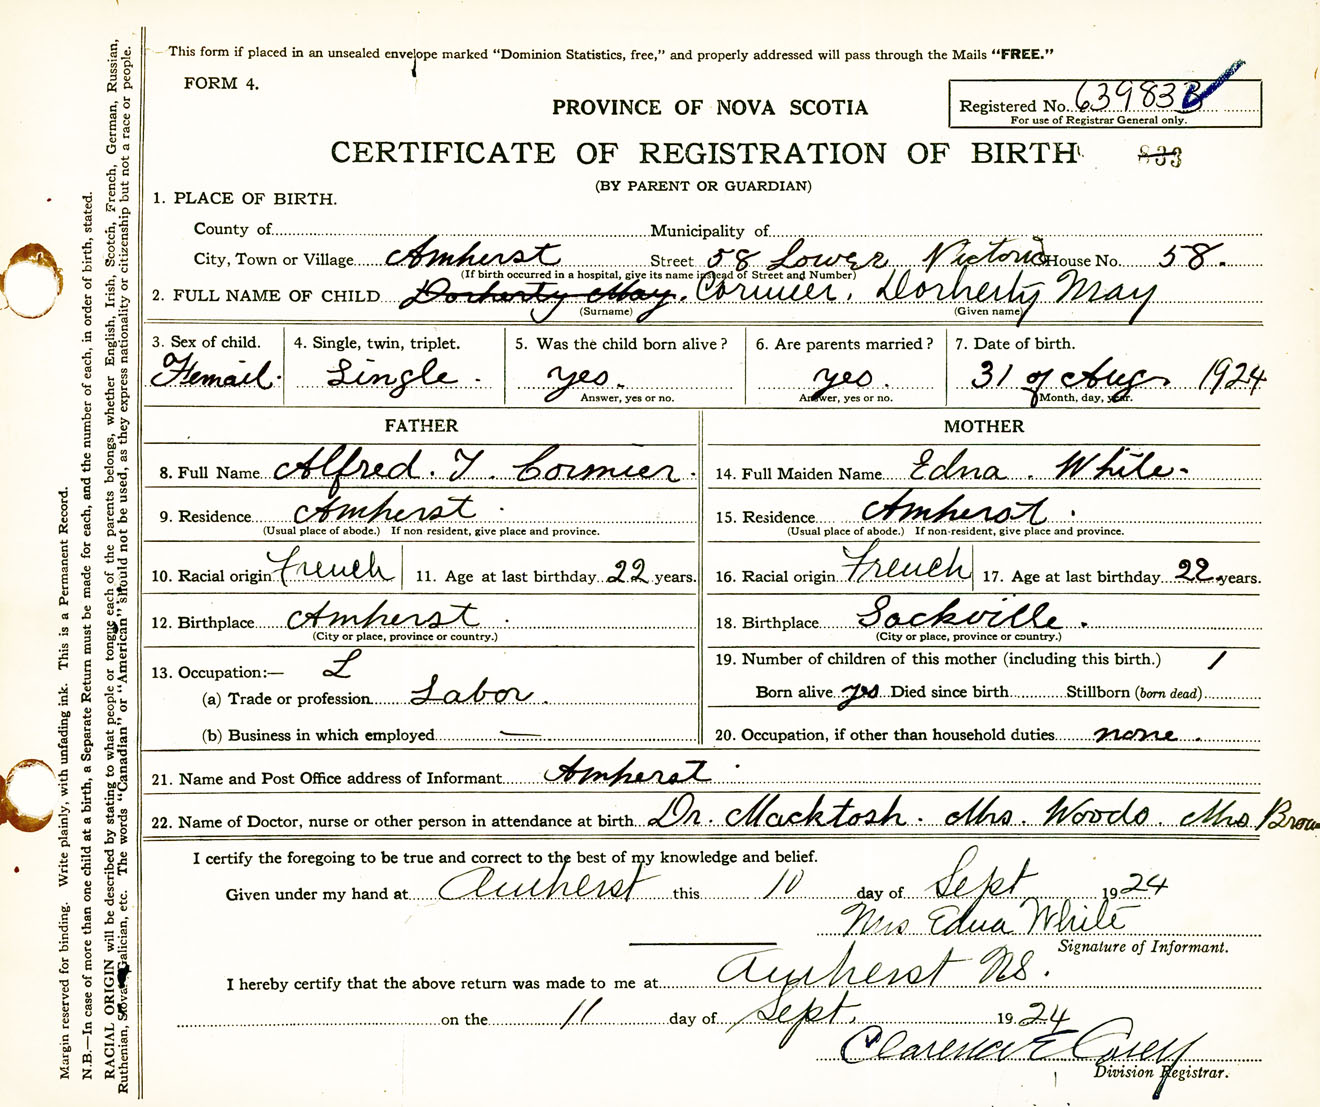 This form if placed in an unsealed envelope marked "Dominion Statistics, free," and properly addressed will pass through the Mails "FREE."
FORM 4.
PROVINCE OF NOVA SCOTIA
Registered No. 63983B
For use of Registrar General only.
CERTIFICATE OF REGISTRATION OF BIRTH 833
(BY PARENT OR GUARDIAN)
1. PLACE OF BIRTH.
County of Municipality of
City, Town or Village Amherst Street 58 Lower Victoria House No. 58.
(If birth occurred in a hospital, give its name instead of Street and Number)
2. FULL NAME OF CHILD Dorherty May. Cormier, Dorherty May
(Surname) (Given name)
3. Sex of child. 4. Single, twin, triplet. 5. Was the child born alive? 6. Are parents married? 7. Date of birth.
Femail. Single. yes. yes. 31 of Aug 1924
Answer, yes or no. Answer, yes or no. Month, day, year.
FATHER MOTHER
8. Full Name Alfred. T. Cormier. 14. Full Maiden Name Edna. White.
9. Residence Amherst. 15. Residence Amherst.
(Usual place of abode.) If non-resident, give place and province. (Usual place of abode.) If non-resident, give place and province.
10. Racial origin French 11. Age at last birthday 22 years. 16. Racial origin French 17. Age at last birthday 22 years.
12. Birthplace Amherst. 18. Birthplace Sackville.
(City or place, province or country.) (City or place, province or country.)
13. Occupation:— L 19. Number of children of this mother (including this birth.) 1
(a) Trade or profession Labor. Born alive yes Died since birth Stillborn (born dead)
(b) Business in which employed — 20. Occupation, if other than household duties none.
21. Name and Post Office address of Informant Amherst
22. Name of Doctor, nurse or other person in attendance at birth Dr. Macktosh. Mrs. Woods. Mrs Brown
I certify the foregoing to be true and correct to the best of my knowledge and belief.
Given under my hand at Amherst this 10 day of Sept 1924
Mrs Edna White
Signature of Informant.
I hereby certify that the above return was made to me at Amherst NS.
on the 11 day of Sept. 1924
Clarence E Casey
Division Registrar.
Margin reserved for binding. Write plainly, with unfading ink. This is a Permanent Record.
N.B.—In case of more than one child at a birth, a Separate Return must be made for each, and the number of each, in order of birth, stated.
RACIAL ORIGIN will be described by stating to what people or tongue each of the parents belongs, whether English, Irish, Scotch, French, German, Russian,
Ruthenian, Slovak, Galician, etc. The words "Canadian" or "American" should not be used, as they express nationality or citizenship but not a race or people.